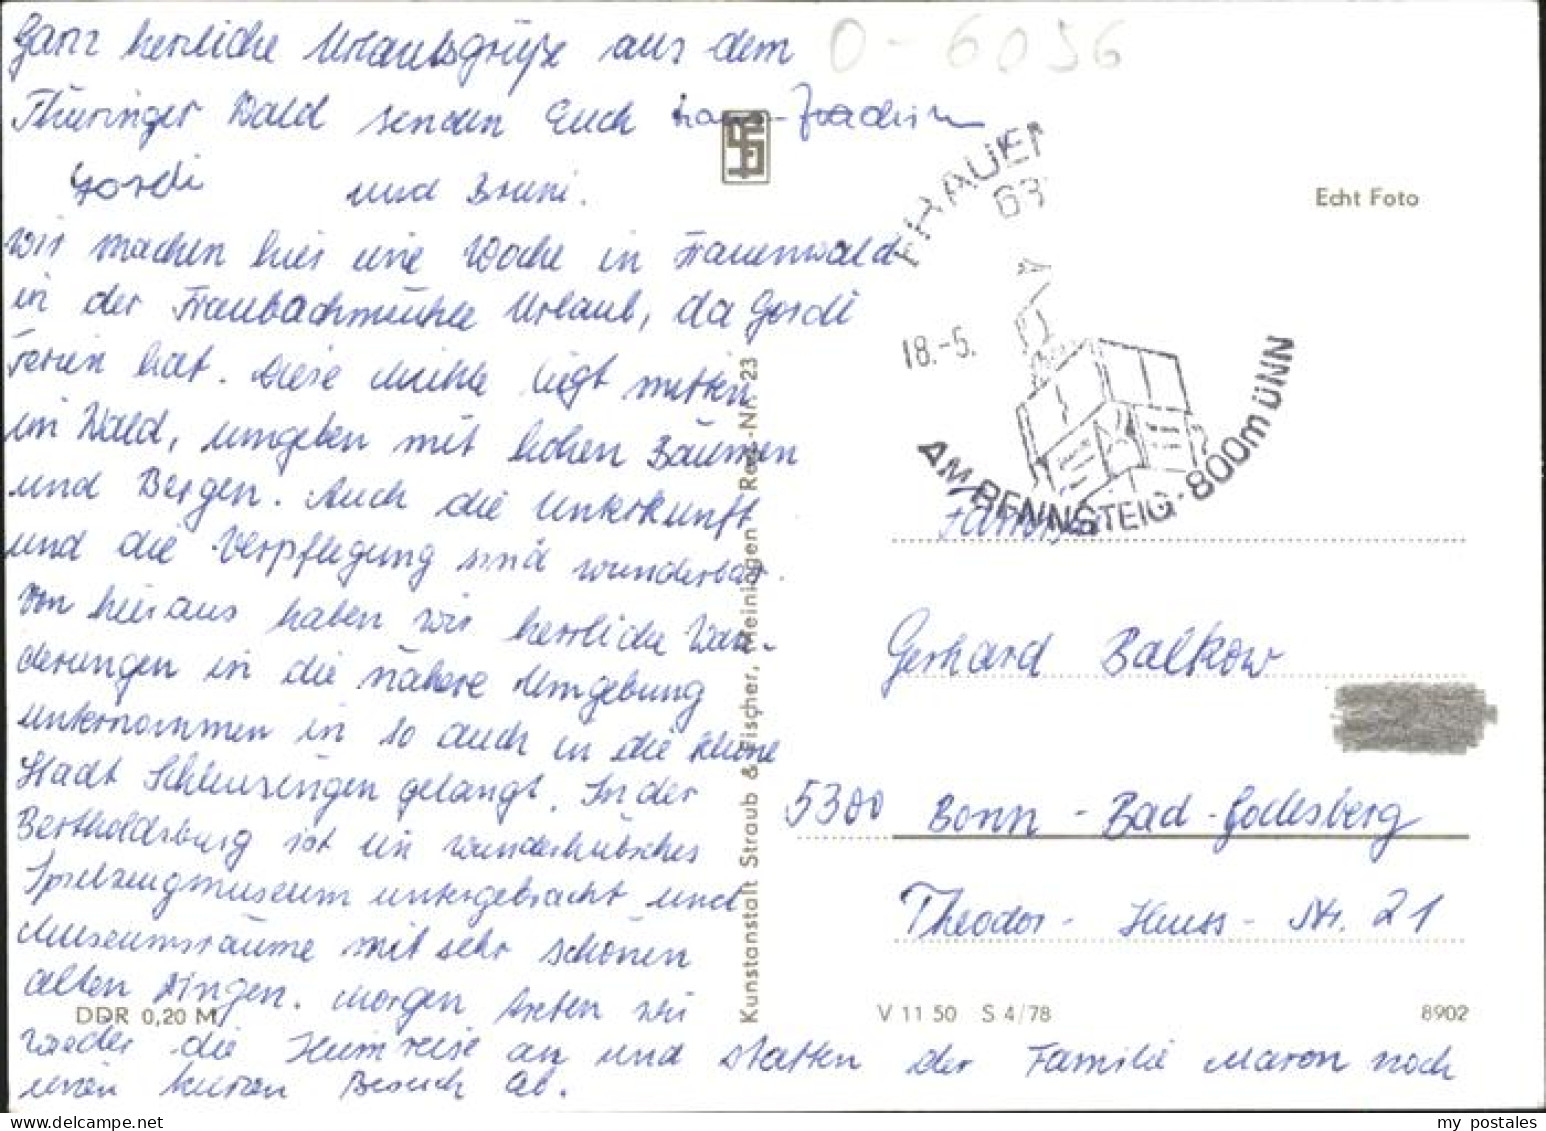 Ganz herrliche Urlaubsgrüße aus dem
Thüringer Wald senden Euch Hans-Joachim
Gordi und Bruni.
Wir machen hier eine Woche in Frauenwald
in der Fraubachmühle Urlaub, da Gordi
Ferien hat. Diese Mühle liegt mitten
im Wald, umgeben mit hohen Bäumen
und Bergen. Auch die Unterkunft
und die Verpflegung sind wunderbar.
Von hier aus haben wir herrliche Wan-
derungen in die nähere Umgebung
unternommen in so auch in die kleine
Stadt Schleusingen gelangt. In der
Bertholdsburg ist ein wunderhübsches
Spielzeugmuseum untergebracht und
Museumsräume mit sehr schönen
alten Dingen. Morgen treten wir
wieder die Heimreise an und statten der Familie Maron noch
einen kurzen Besuch ab.
O-6056
Echt Foto
FRAUEN
63
18.-5.
AM RENNSTEIG · 800m ÜNN
Familie
Gerhard Balkow
5300 Bonn - Bad-Godesberg
Theodor-Heuss-Str. 21
Kunstanstalt Straub & Fischer, Meiningen Reg.-Nr. 23
DDR 0,20 M
V 11 50 S 4/78
8902
my postales